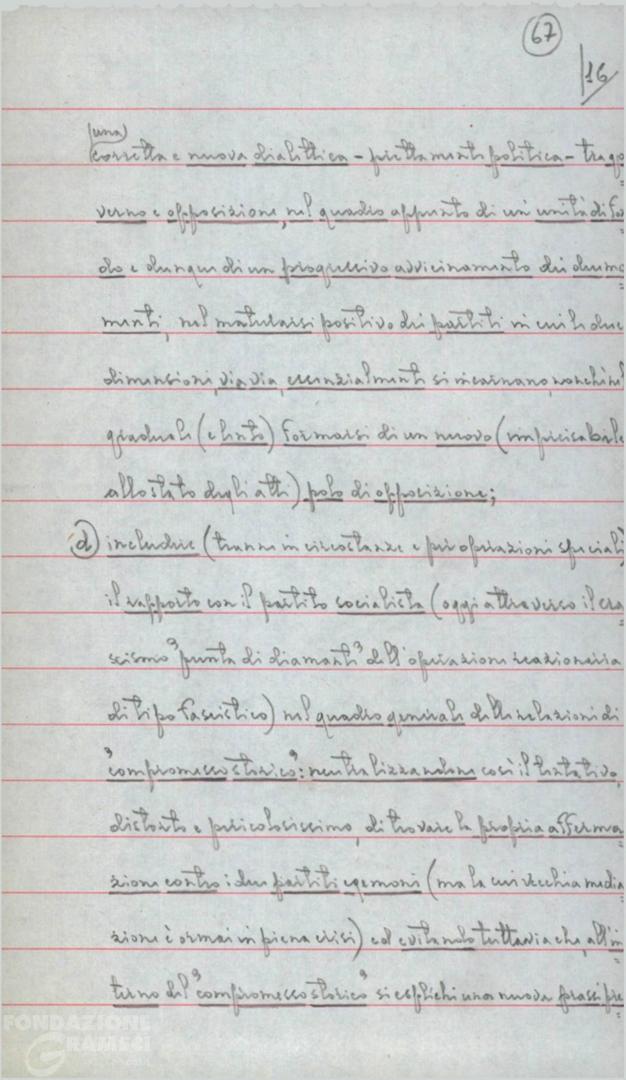 67
16
(una)
corretta e nuova dialettica - prettamente politica - tra go
verno e opposizione, nel quadro appunto di un'unità di fo
do e dunque di un progressivo avvicinamento dei due mo
menti, nel maturarsi positivo dei partiti in cui le due
dimensioni, via via, essenzialmente si incarnano, nonché nel
graduale (e lento) formarsi di un nuovo (imprecisabile
allo stato degli atti) polo di opposizione;
d) includere (tranne in circostanze e per operazioni speciali)
il rapporto con il partito socialista (oggi attraverso il cra
scismo "punta di diamante" dell'operazione reazionaria
di tipo fascistico) nel quadro generale delle relazioni di
"compromesso storico": neutralizzandone così il tentativo,
distorto e pericolosissimo, di trovare la propria afferma
zione contro i due partiti egemoni (ma la cui vecchia media
zione è ormai in piena crisi) ed evitando tuttavia che, all'in
terno del "compromesso storico" si esplichi una nuova prassi pre
FONDAZIONE
GRAMSCI